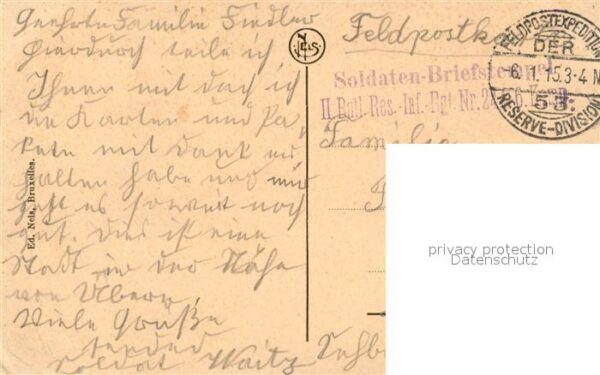 Geehrte Familie Fiedler
hierdurch teile ich
Ihnen mit das ich
die Karten und Pa-
kete mit dank er
halten habe und mir
geht es soweit noch
gut. Dies ist eine
Stadt in der Nähe
von
Viele Grüße
sendet
Soldat Waitz
Ed. Nels, Bruxelles.
NELS
Feldpostkarte
Soldaten-Briefstempel
II. Batl. Res.-Inf.-Rgt. Nr.
FELDPOSTEXPEDITION
DER
6.1.15. 3-4 N
53.
RESERVE-DIVISION
Familie
privacy protection
Datenschutz